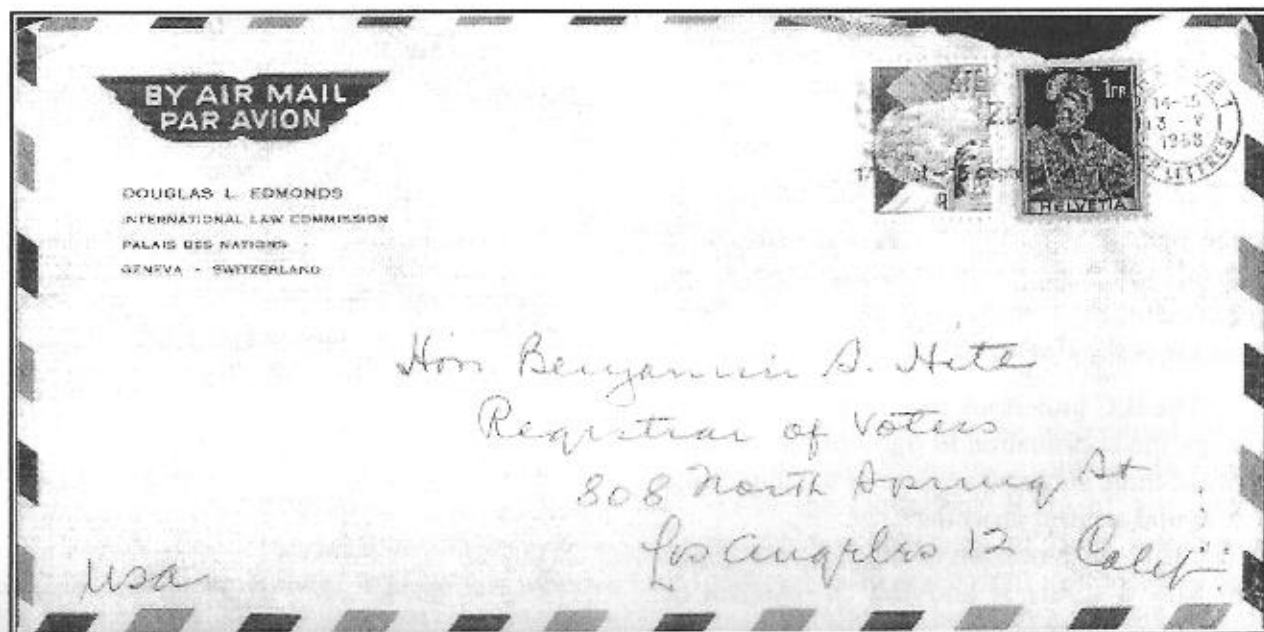 BY AIR MAIL
PAR AVION
DOUGLAS L. EDMONDS
INTERNATIONAL LAW COMMISSION
PALAIS DES NATIONS
GENEVA - SWITZERLAND
1 FR
HELVETIA
14-15
1958
LETTRES
Hon. Benjamin S. Hite
Registrar of Voters
808 North Spring St
Los Angeles 12 Calif.
USA